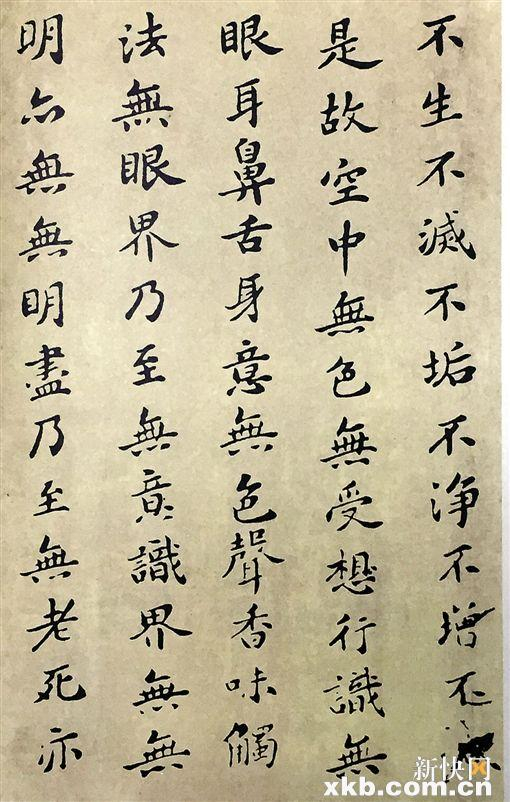 不生不滅不垢不净不增不
是故空中無色無受想行識無
眼耳鼻舌身意無色聲香味觸
法無眼界乃至無意識界無無
明亦無無明盡乃至無老死亦
新快网
xkb.com.cn